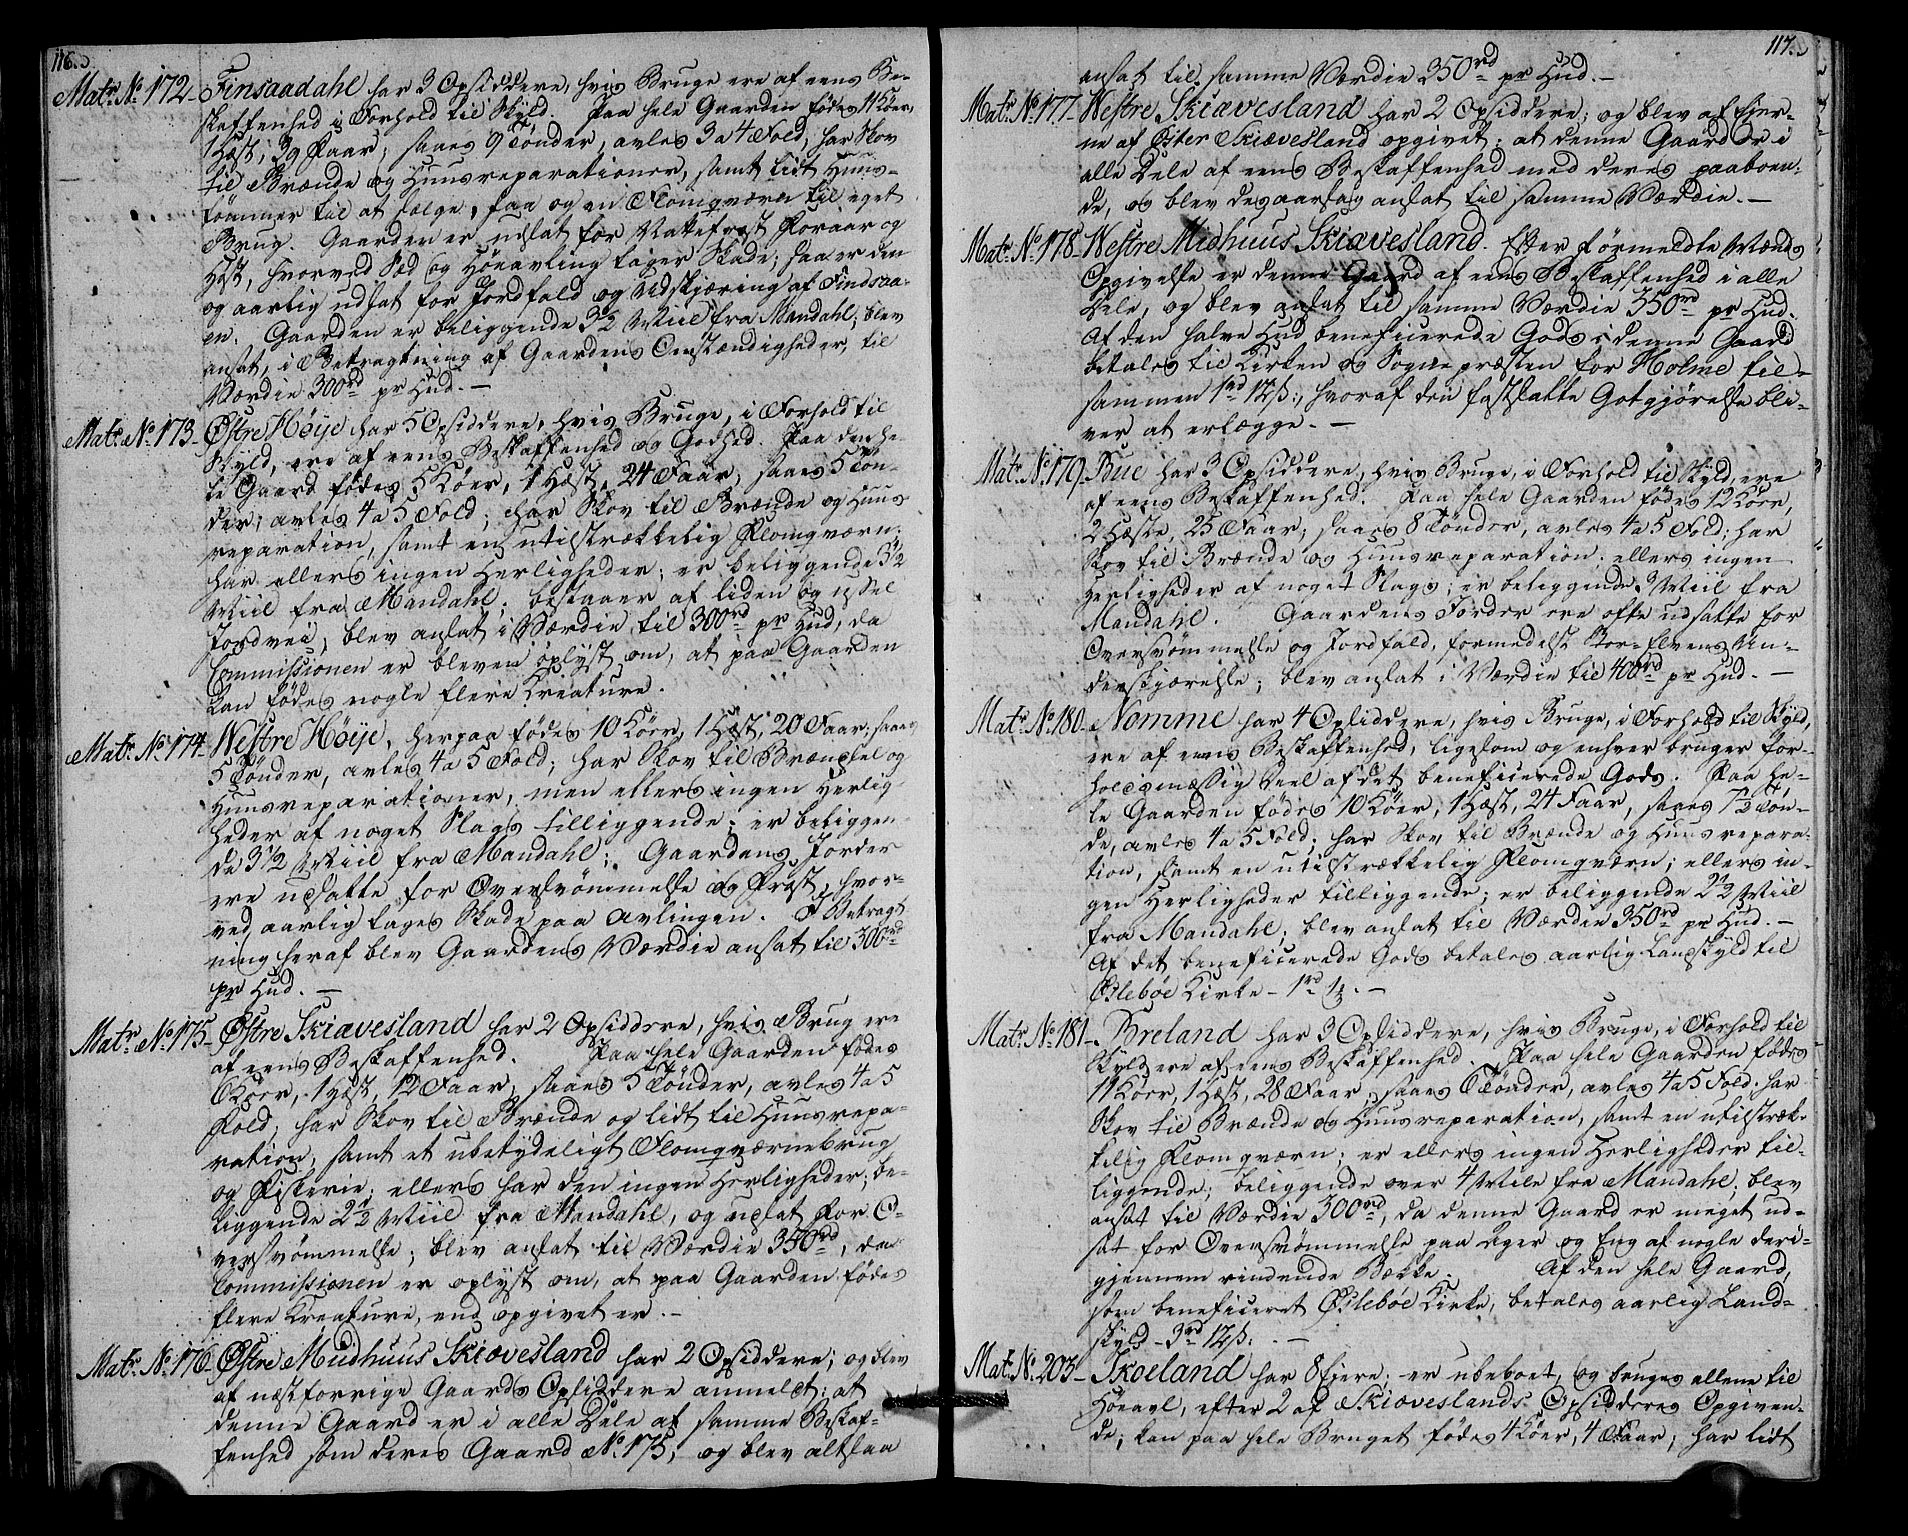 116.
Matr. No. 172. Finsaadahl har 3 Opsiddere, hvis Bruge ere af eens Be-
skaffenhed i Forhold til Skyld. Paa hele Gaarden fødes 11 Köer,
1 Hest, 39 Faar; saaes 9 Tönder, avles 3 a 4 Fold; har Skov
til Brænde og Huusreparationer, samt lidt Huus-
tömmer til at sælge, saa og en Flomqværn til eget
Brug. Gaarden er udsat for Nattefrost Foraar og
Høst, hvorved Sæd og Höeavling tager Skade; saa er den
og aarlig udsat for Jordfald og Udskjæring af Findsaa-
en. Gaarden er beliggende 3½ Miil fra Mandahl; blev
ansat, i Betragtning af Gaardens Omstændigheder, til
Værdie 300rd pr Hud. –
Matr. No. 173. Østre Höije har 5 Opsiddere, hvis Bruge, i Forhold til
Skyld, ere af eens Beskaffenhed og Godhed. Paa den he-
le Gaard fødes 5 Köer, 1 Hest, 24 Faar; saaes 5 Tön-
der; avles 4 a 5 Fold; har Skov til Brænde og Huus
reparation, samt en utilstrækkelig Flomqværn;
har ellers ingen Herligheder; er beliggende 3½
Miil fra Mandahl; bestaaer af liden og ussel
Jordvei; blev ansat i Værdie til 300rd pr Hud, da
Commissionen er bleven oplyst om, at paa Gaarden
kan fødes nogle flere Creature.
Matr. No. 174. Westre Höije, herpaa fødes 10 Köer, 1 Hest, 20 Faar; saaes
5 Tönder, avles 4 a 5 Fold; har Skov til Brændsel og
Huusreparationer, men ellers ingen Herlig-
heder af noget Slags tilliggende; er beliggen-
de 3½ Miil fra Mandahl; Gaardens Jorder
ere udsatte for Oversvömmelse og Frost, hvor-
ved aarlig tages Skade paa Avlingen. I Betragt
ning heraf blev Gaardens Værdie ansat til 300rd
pr Hud. –
Matr. No. 175. Østre Skiævesland har 2 Opsiddere, hvis Brug ere
af eens Beskaffenhed. Paa hele Gaarden fødes
6 Köer, 1 Hest, 12 Faar; saaes 5 Tönder, avles 4 a 5
Fold; har Skov til Brænde og lidt til Huusrepa-
ration, samt et ubetydeligt Flomqværnebrug
og Fiskerie; ellers har den ingen Herligheder; be-
liggende 2½ Miil fra Mandahl, og udsat for O-
versvömmelse; blev ansat til Værdie 350rd, da
Commissionen er oplyst om, at paa Gaarden fødes
flere Creature, end opgivet er. –
Matr. No. 176. Østre Midhuus Skiævesland har 2 Opsiddere; og blev
af næstforrige Gaards Opsiddere anmeldt: at
denne Gaard er i alle Dele af samme Beskaf-
fenhed som deres Gaard No. 175; og blev altsaa
117.
ansat til samme Værdie 350rd pr Hud. –
Matr. No. 177. Westre Skiævesland har 2 Opsiddere; og blev af Eier-
ne af Öster Skiævesland opgivet: at denne Gaard er i
alle Dele af eens Beskaffenhed med deres paaboen-
de, og blev desaarsag ansat til samme Værdie. –
Matr. No. 178. Westre Midhuus Skiævesland. Efter formeldte Mænds
Opgivelse er denne Gaard af eens Beskaffenhed i alle
Dele, og blev ansat til samme Værdie 350rd pr Hud.
Af den halve Hud beneficerede Gods i denne Gaard
betales til Kirken og Sognepræsten for Holme til-
sammen 1rd 12ß, hvoraf den fastsatte Gotgjörelse bli-
ver at erlægge. –
Matr. No. 179. Bue har 3 Opsiddere, hvis Bruge, i Forhold til Skyld, ere
af eens Beskaffenhed. Paa hele Gaarden fødes 12 Köer,
2 Heste, 25 Faar; saaes 8 Tönder, avles 4 a 5 Fold; har
Skov til Brænde og Huusreparation; ellers ingen
Herligheder af noget Slags; er beliggende 3 Miil fra
Mandahl. Gaardens Jorder ere ofte udsatte for
Oversvömmelse og Jordfald, formedelst Bor-Elvens Un-
derskjærelse; blev ansat i Værdie til 400rd pr Hud. –
Matr. No. 180. Nomme har 4 Opsiddere, hvis Bruge, i Forhold til Skyld,
ere af eens Beskaffenhed, ligesom og enhver bruger for-
holdsmæssig Deel af det beneficerede Gods. Paa he-
le Gaarden fødes 10 Köer, 1 Hest, 24 Faar, saaes 7½ Tön-
de, avles 4 a 5 Fold; har Skov til Brænde og Huusrepara-
tion, samt en utilstrækkelig Flomqværn; ellers in-
gen Herligheder tilliggende; er beliggende 2½ Miil
fra Mandahl; blev ansat til Værdie 350rd pr Hud. –
Af det beneficerede Gods betales aarlig Landskyld til
Øslebøe Kirke – 1rd –
Matr. No. 181. Breland har 3 Opsiddere, hvis Bruge, i Forhold til
Skyld ere af eens Beskaffenhed. Paa hele Gaarden fødes
11 Köer, 1 Hest, 28 Faar; saaes 6 Tönder, avles 4 a 5 Fold; har
Skov til Brænde og Huusreparation, samt en utilstræk-
kelig Flomqværn; er ellers ingen Herligheder til-
liggende; beliggende over 4 Mile fra Mandahl; blev
ansat til Værdie 300rd, da denne Gaard er meget ud-
sat for Oversvömmelse paa Ager og Eng af nogle deri-
gjennem rindende Bække. Af den hele Gaard,
som beneficeret Øslebøe Kirke, betales aarlig Land-
skyld – 3rd 12ß. –
Matr. No. 203. Skoeland har 8 Eiere; er ubeboet, og bruges allene til
Höeavl, efter 2 af Skiæveslands Opsidderes Opgiven-
de; kan paa hele Bruget fødes 4 Köer, 4 Faar; har lidt